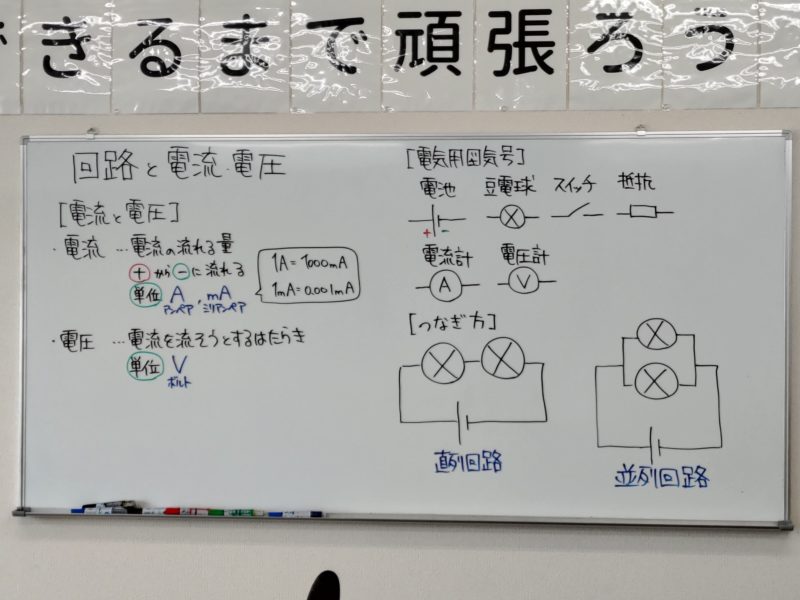 できるまで頑張ろう
回路と電流・電圧
[電流と電圧]
・電流 …電流の流れる量
⊕から⊖に流れる
単位 A , mA
アンペア ミリアンペア
1A=1000mA
1mA=0.001mA
・電圧 …電流を流そうとするはたらき
単位 V
ボルト
[電気用図気号]
電池 豆電球 スイッチ 抵抗
+ -
電流計 電圧計
A V
[つなぎ方]
直列回路
並列回路